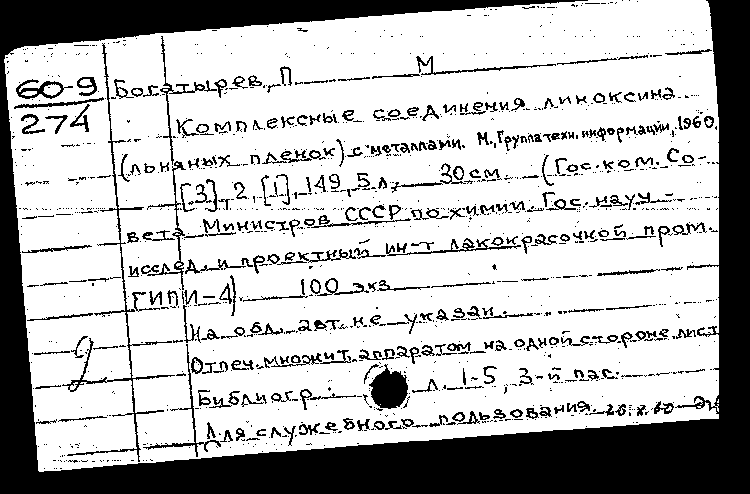 М
60-9 Богатырев, П.
274 Комплексные соединения линоксина
(льняных пленок) с металлами. М., Группа техн. информации, 1960.
[3], 2, [1], 149, 5 л., 30 см. (Гос. ком. Со-
вета Министров СССР по химии. Гос. науч.-
исслед. и проектный ин-т лакокрасочной пром.
ГИПИ-4). 100 экз.
На обл. авт. не указан.
2 Отпеч. множит. аппаратом на одной стороне лист
Библиогр.: л. 1-5, 3-й паг.
Для служебного пользования.